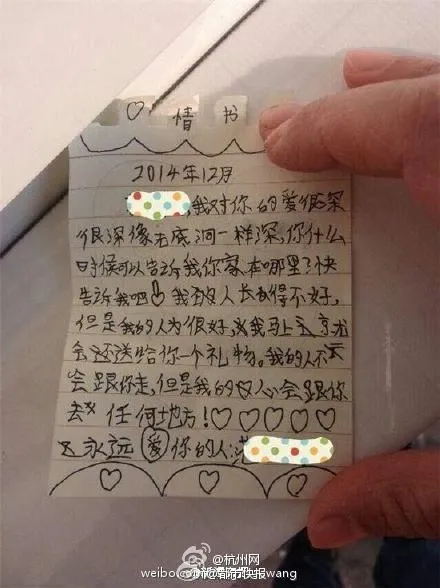 ♡情书
2014年12月
,我对你的爱很深
很深像无底洞一样深,你什么
时候可以告诉我你家在哪里?快
告诉我吧!我本人长得不好,
但是我的人为很好,我马上
会还送给你一个礼物。我的人不
会跟你走,但是我的心会跟你
去任何地方!♡♡♡♡♡
永远爱你的人:
@杭州网
@都市快报